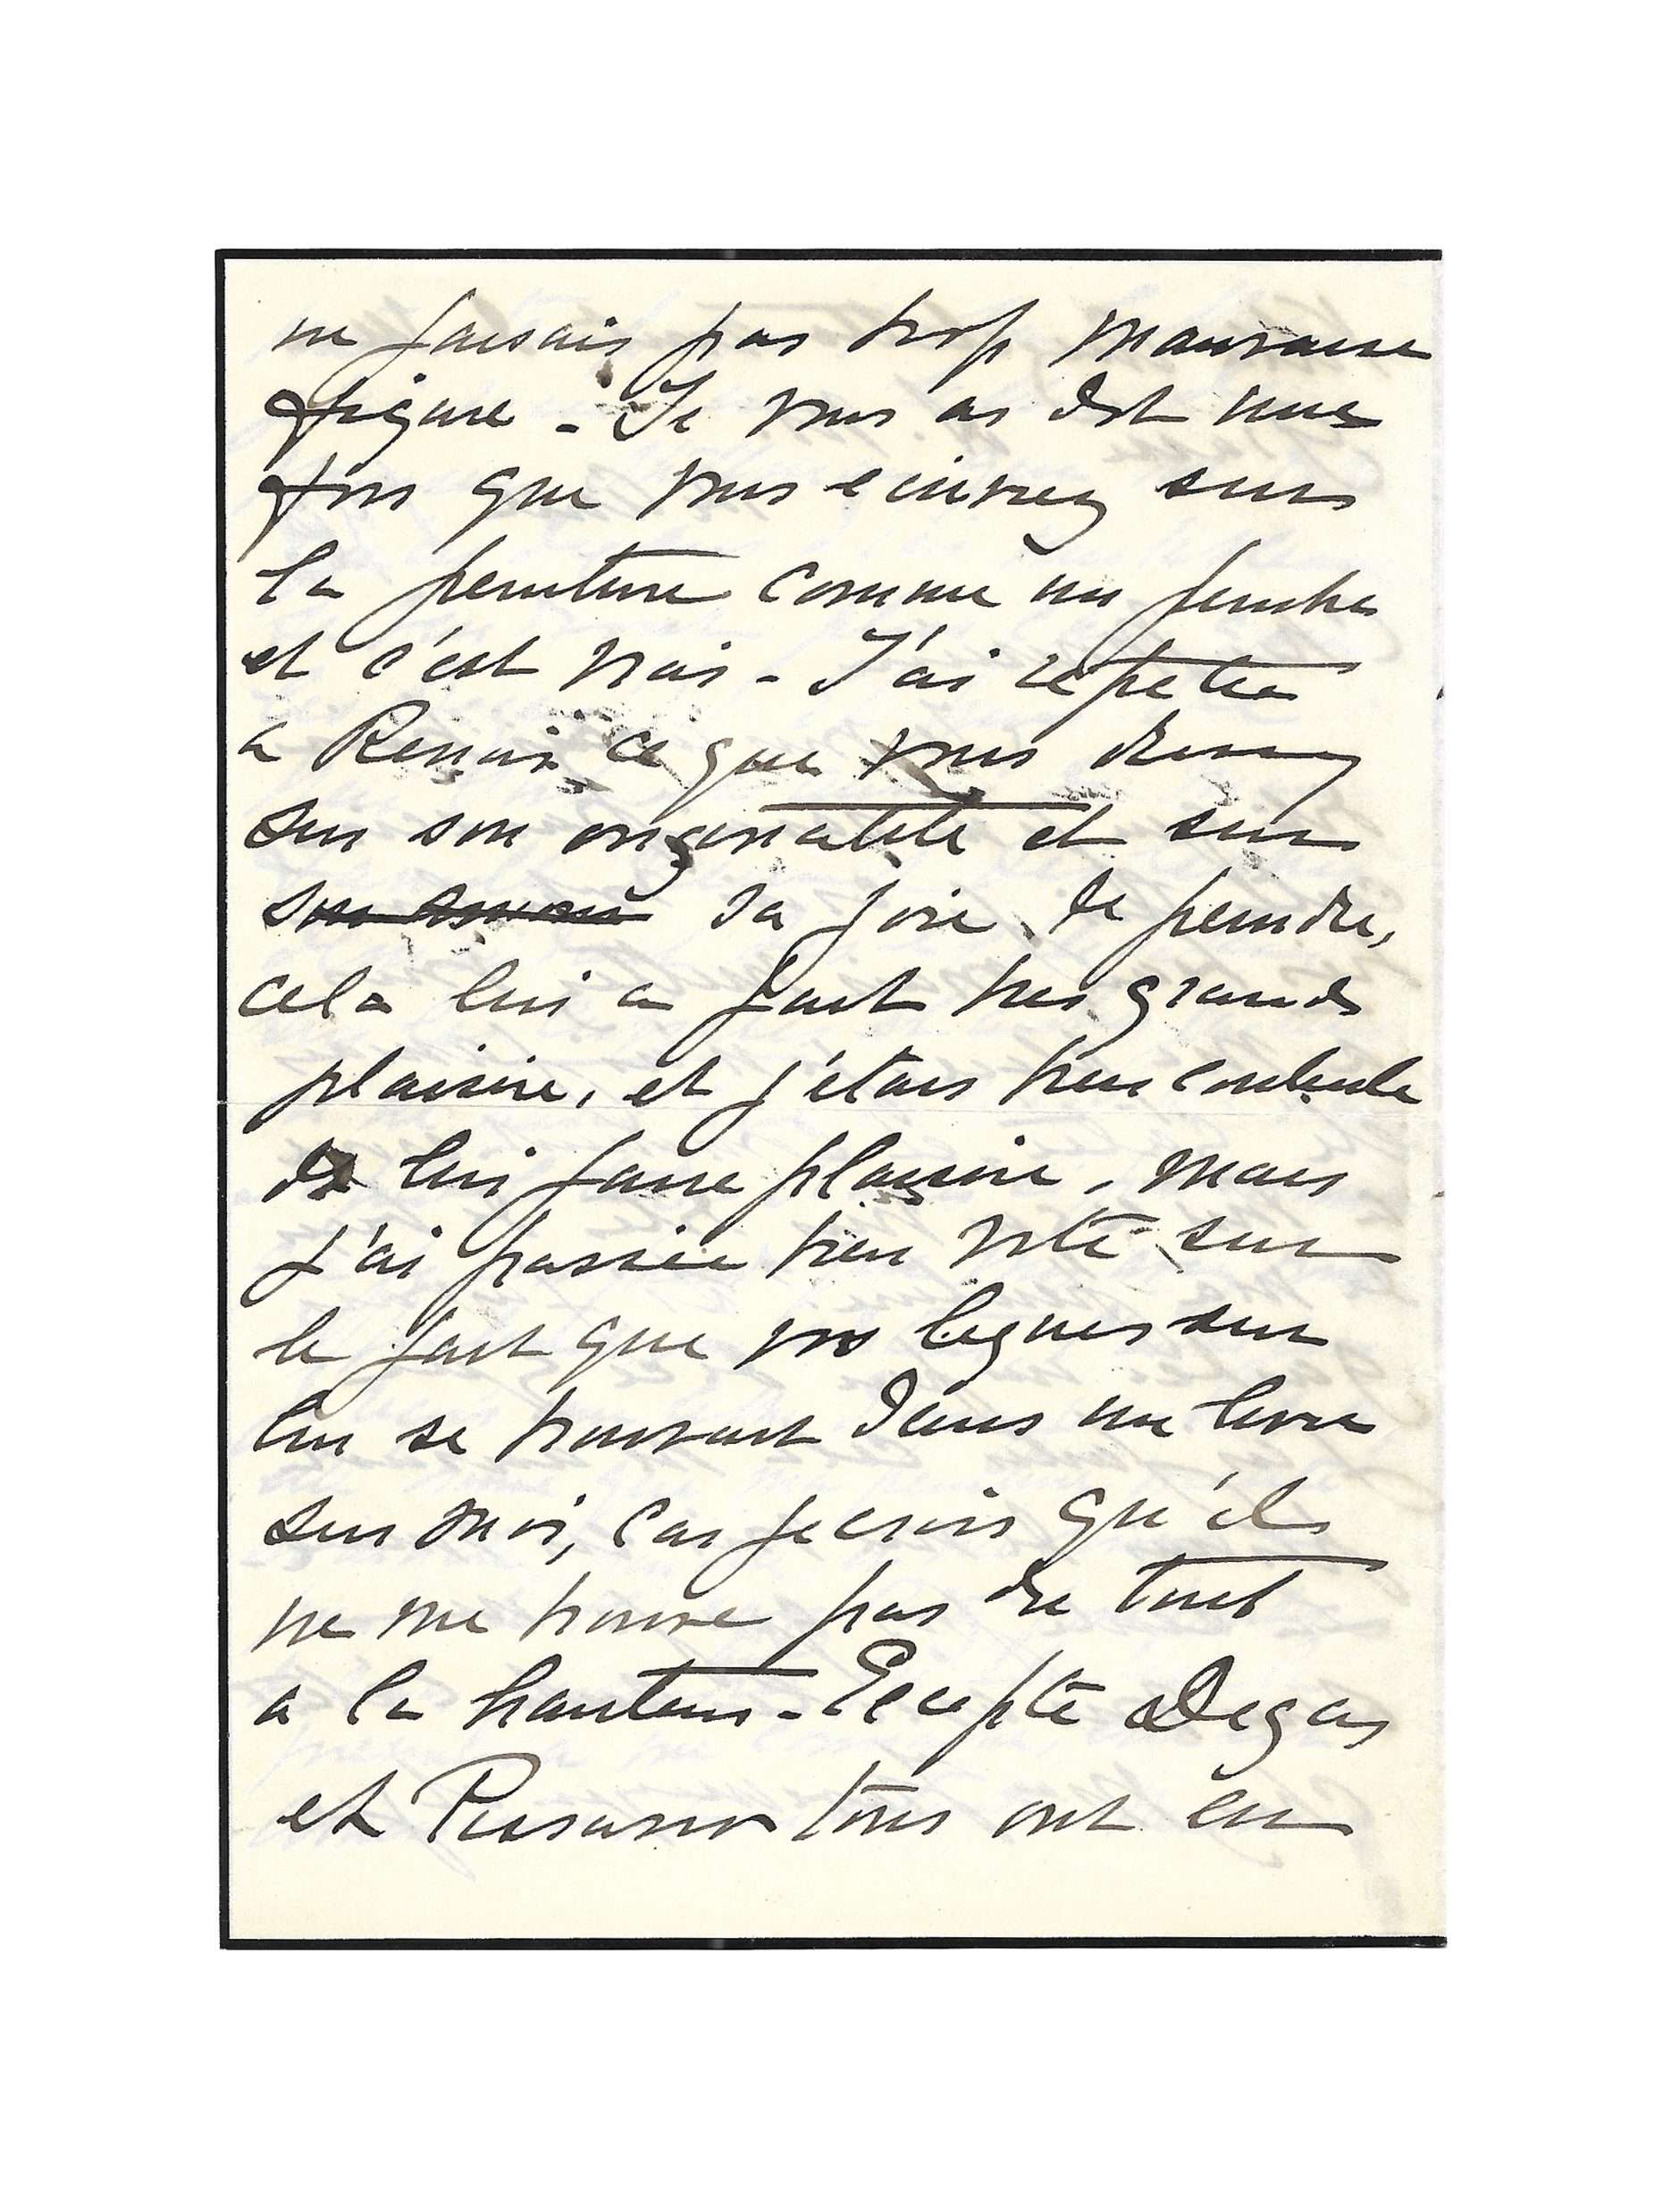 ne faisais pas trop mauvaise
figure - Je vous ai dit une
fois que vous écrivez sur
la peinture comme un peintre
et c'est vrai - J'ai répétée
a Renoir ce que vous disiez
sur son originalité et sur
sa joie de peindre,
cela lui a fait tres grand
plaisire, et j'étais bien contente
de lui faire plaisire, mais
j'ai passée bien vite sur
le fait que vos lignes sur
lui se trouvait dans un livre
sur moi, car je crois qu'il
ne me trouve pas du tout
a la hauteur - Ecepté Degas
et Pissarro tous ont eu